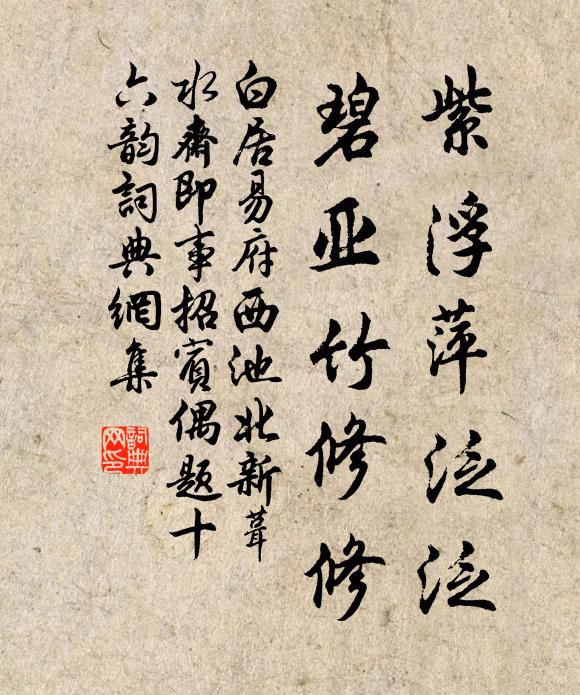 紫浮萍泛泛
碧亚竹修修
白居易府西池北新葺
水齋即事招賓偶題十
六韵詞典網集
詞典
网印